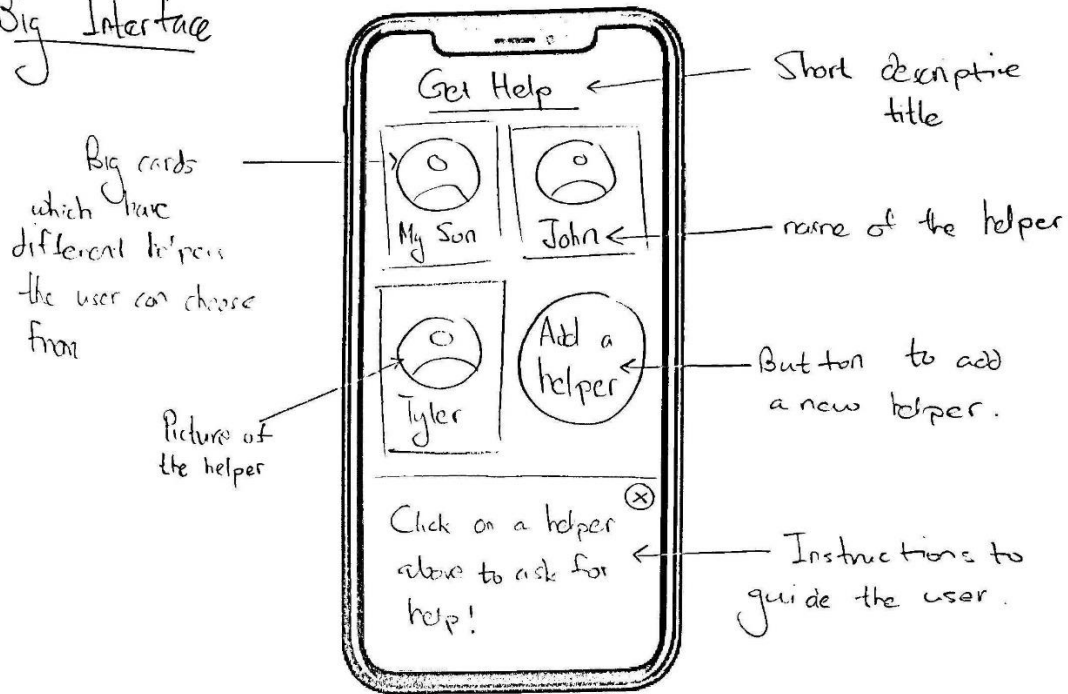 Big Interface
Get Help
Short descriptive
title
Big cards
which have
different helpers
the user can choose
from
My Son
John
name of the helper
Add a
helper
Button to add
a new helper.
Tyler
Picture of
the helper
Click on a helper
above to ask for
help!
Instructions to
guide the user.